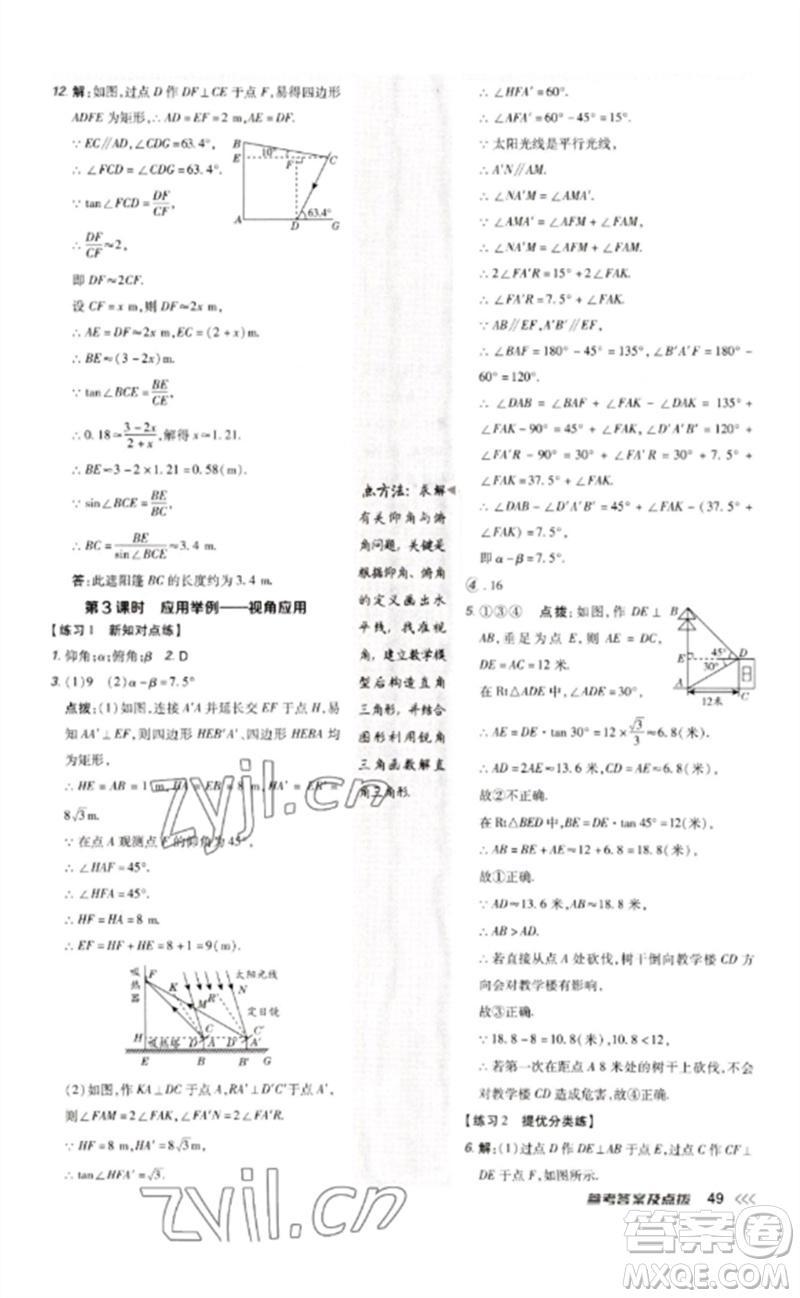 12. 解:如图,过点 D 作 DF⊥CE 于点 F,易得四边形
ADFE 为矩形,∴AD=EF=2 m,AE=DF.
∵EC∥AD,∠CDG=63.4°,
∴∠FCD=∠CDG=63.4°.
∵tan∠FCD=DF/CF,
∴DF/CF≈2,
即 DF≈2CF.
设 CF=x m,则 DF≈2x m,
∴AE=DF≈2x m,CE=(2+x)m.
∴BE≈(3-2x)m.
∵tan∠BCE=BE/CE,
∴0.18≈(3-2x)/(2+x),解得 x≈1.21.
∴BE≈3-2×1.21=0.58(m).
∵sin∠BCE=BE/BC,
∴BC=BE/sin∠BCE≈3.4 m.
答:此遮阳篷 BC 的长度约为 3.4 m.
B
E
10°
F
C
63.4°
A
D
G
第3课时 应用举例——视角应用
【练习1 新知对点练】
1. 仰角;α;俯角;β 2. D
3. (1)9 (2)α-β=7.5°
点拨:(1)如图,连接 A'A 并延长交 EF 于点 H,易
知 AA'⊥EF,则四边形 HEB'A'、四边形 HEBA 均
为矩形,
∴HE=AB=1 m,HA'=EB'=
8√3 m.
∵在点 A 观测点 F 的仰角为 45°,
∴∠HAF=45°.
∴∠HFA=45°.
∴HF=HA=8 m,
∴EF=HF+HE=8+1=9(m).
吸热器
F
K
R'
太阳光线
M
N
定日镜
H
吸热塔
D
C
A
C'
A'
E
B
B'
G
(2)如图,作 KA⊥DC 于点 A,RA'⊥D'C'于点 A',
则∠FAM=2∠FAK,∠FA'N=2∠FA'R.
∵HF=8 m,HA'=8√3 m,
∴tan∠HFA'=√3.
点方法:求解
有关仰角与俯
角问题,关键是
根据仰角、俯角
的定义画出水
平线,找准视
角,建立数学模
型后构造直角
三角形,并结合
图形利用锐角
三角函数解直
角三角形.
∴∠HFA'=60°.
∴∠AFA'=60°-45°=15°.
∵太阳光线是平行光线,
∴A'N∥AM.
∴∠NA'M=∠AMA'.
∵∠AMA'=∠AFM+∠FAM,
∴∠NA'M=∠AFM+∠FAM.
∴2∠FA'R=15°+2∠FAK.
∴∠FA'R=7.5°+∠FAK.
∵AB∥EF,A'B'∥EF,
∴∠BAF=180°-45°=135°,∠B'A'F=180°-
60°=120°.
∴∠DAB=∠BAF+∠FAK-∠DAK=45°+
∠FAK,∠D'A'B'=∠B'A'F+∠FA'R-∠D'A'R=
30°+∠FA'R=30°+7.5°+∠FAK=37.5°+∠FAK.
∴∠DAB-∠D'A'B'=45°+∠FAK-(37.5°+
∠FAK)=7.5°,
即 α-β=7.5°.
④. 16
5. ①③④ 点拨:如图,作 DE⊥
AB,垂足为点 E,则 AE=DC,
DE=AC=12 米.
在 Rt△ADE 中,∠ADE=30°,
∴AE=DE·tan30°=12×√3/3≈6.8(米),
∴AD=2AE≈13.6 米,CD=AE≈6.8 米.
故②不正确.
在 Rt△BED 中,BE=DE·tan 45°=12(米),
∴AB=BE+AE≈12+6.8=18.8(米),
故①正确.
∵AD≈13.6 米,AB≈18.8 米,
∴AB>AD.
∴若直接从点 A 处砍伐,树干倒向教学楼 CD 方
向会对教学楼有影响,
故③正确.
∵18.8-8=10.8(米),10.8<12,
∴若第一次在距点 A 8 米处的树干上砍伐,不会
对教学楼 CD 造成危害,故④正确.
B
E
45°
30°
D
A
12米
C
【练习2 提优分类练】
6. 解:(1)过点 D 作 DE⊥AB 于点 E,过点 C 作 CF⊥
DE 于点 F,如图所示.
参考答案及点拨 49
zyjl.cn
zyjl.cn
答案卷
MXQE.COM